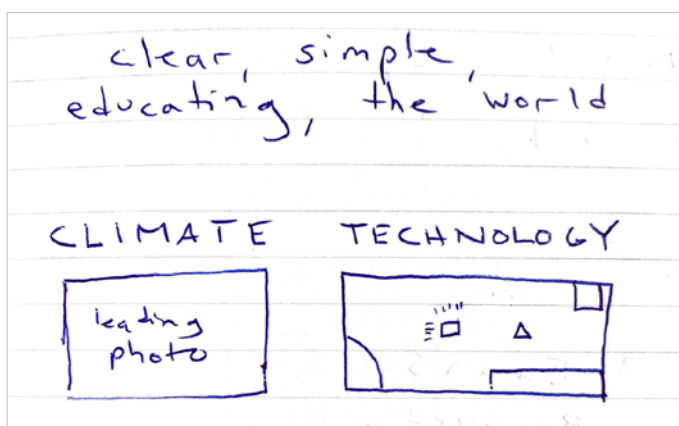 clear, simple,
educating, the world
CLIMATE TECHNOLOGY
leading
photo